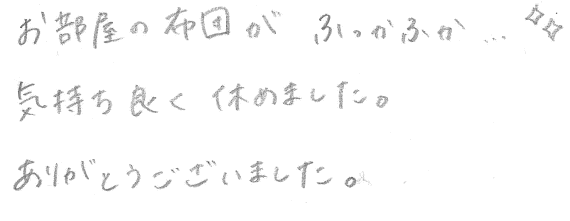 お部屋の布団が ふっかふか…
気持ち良く休めました。
ありがとうございました。